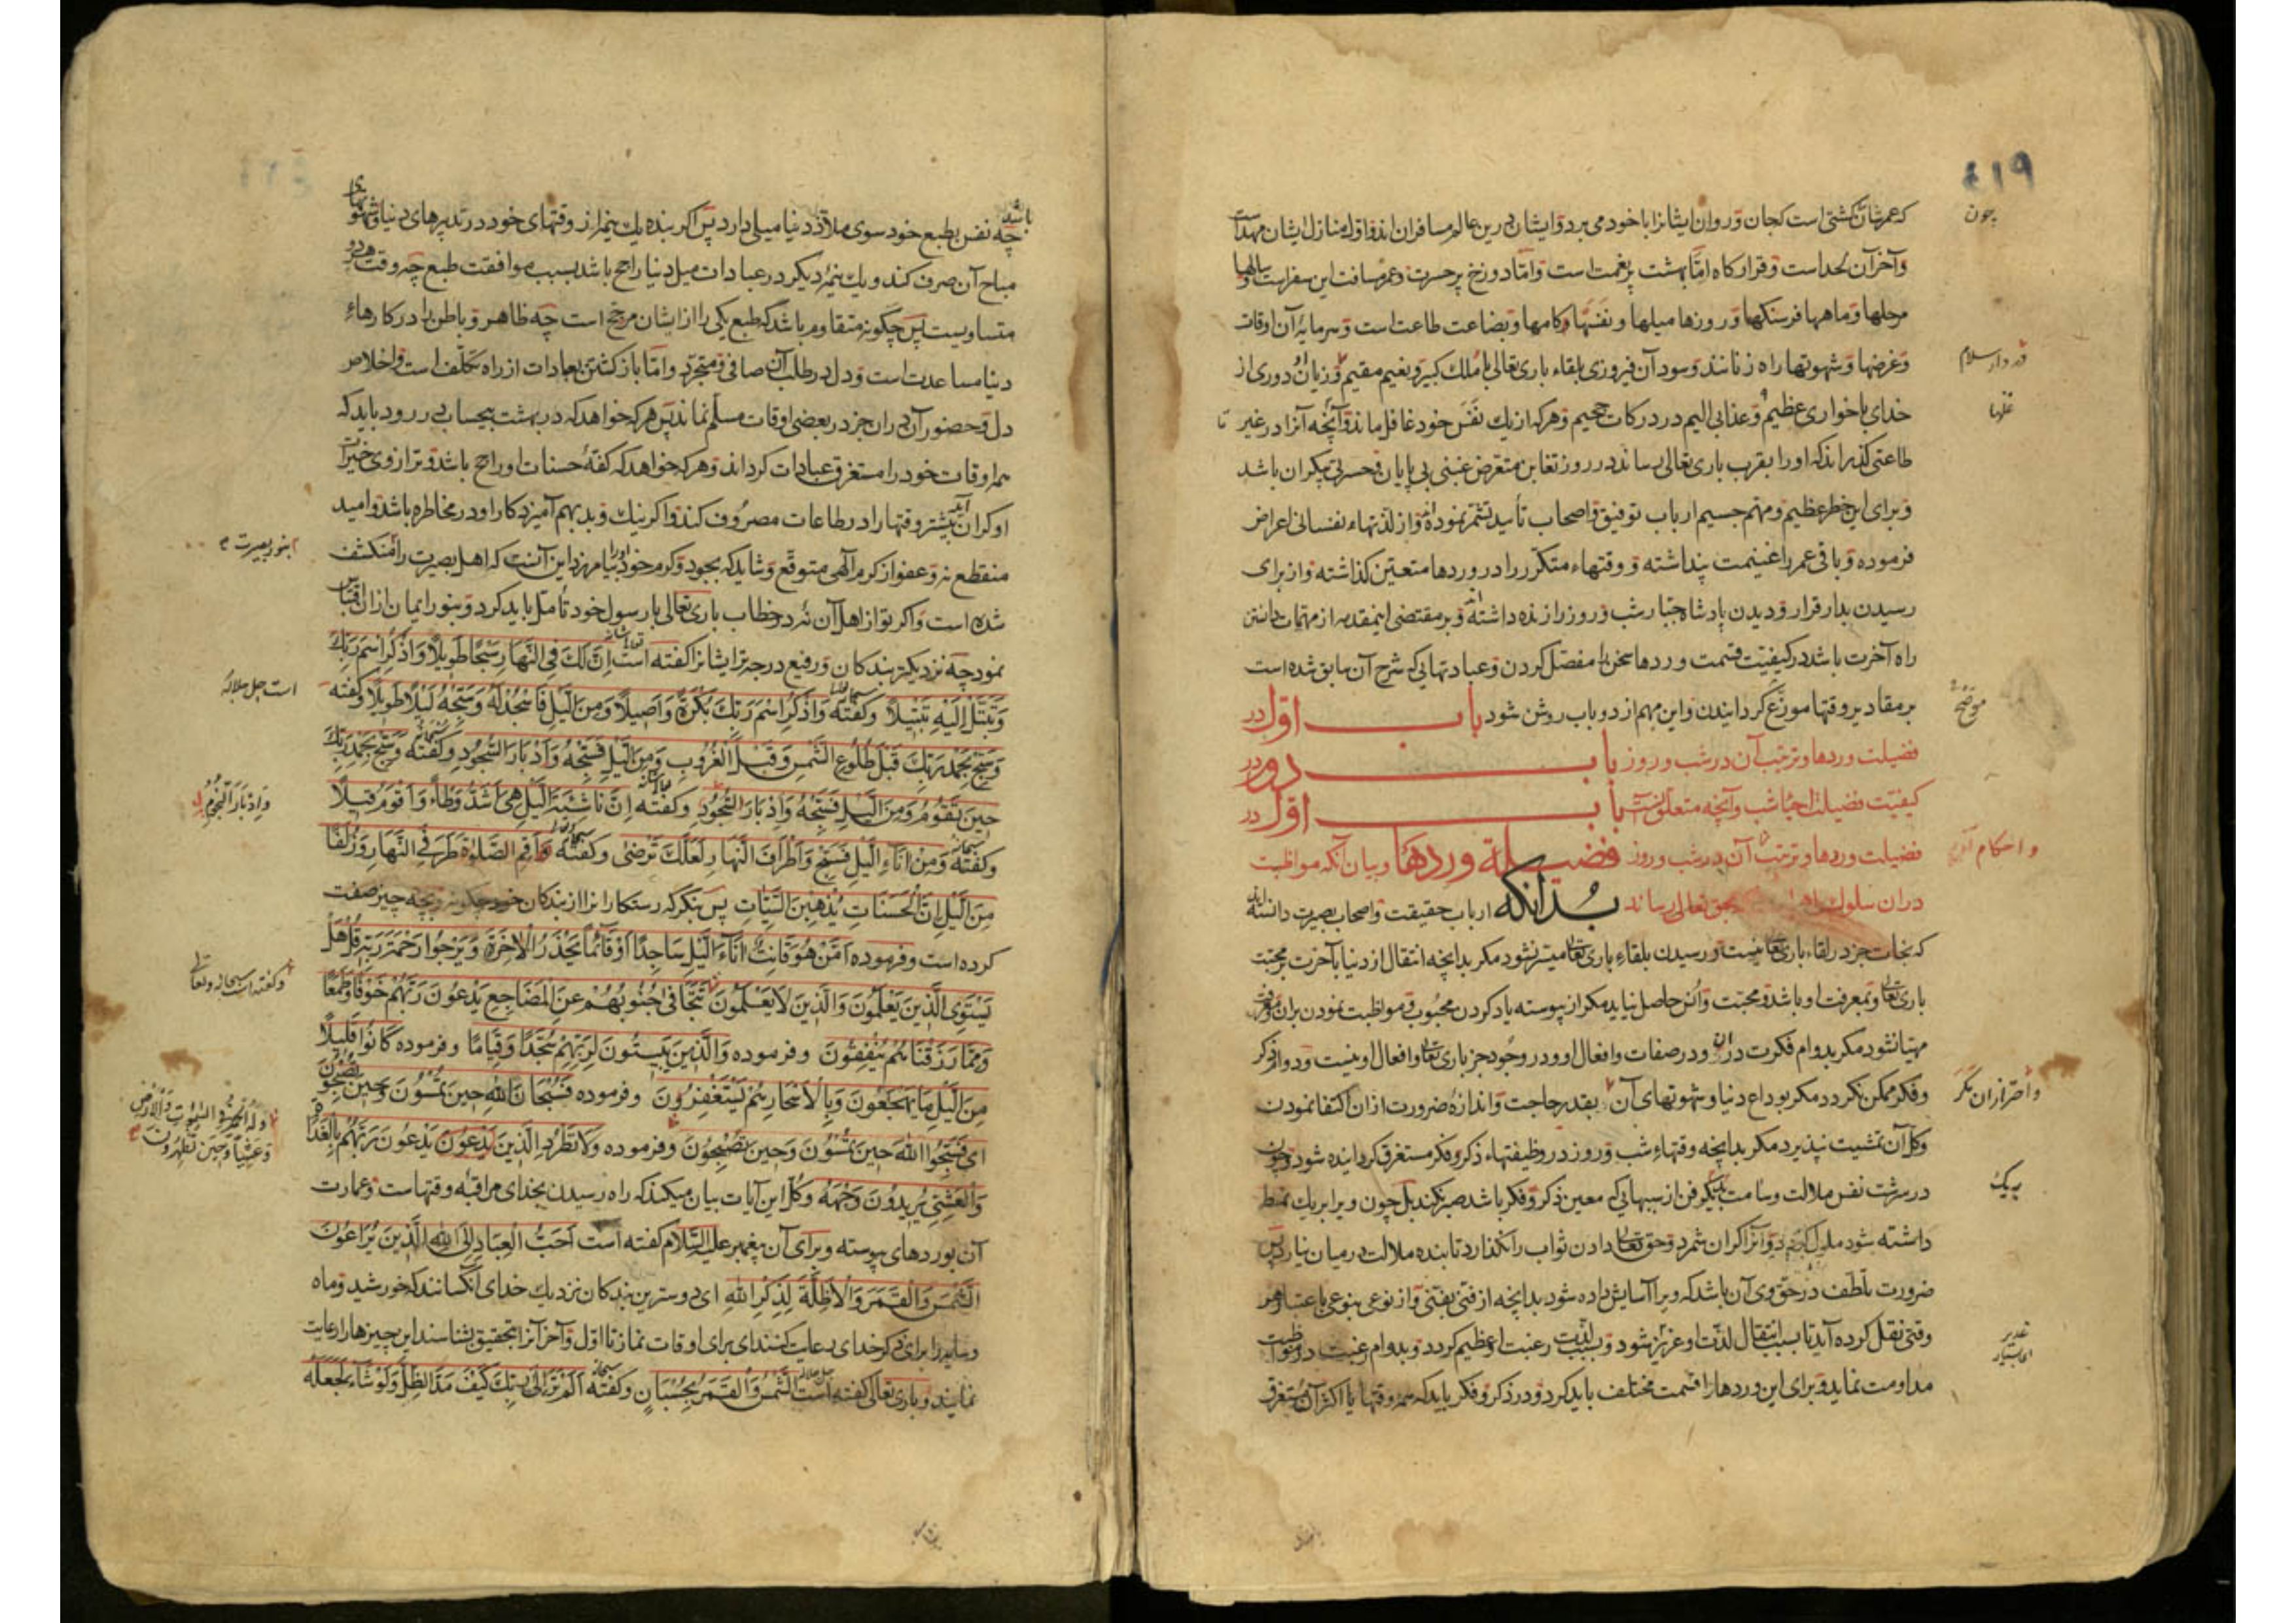 ۴۱۹
که عمرشان کشتی است کجان و روان ایشانرا با خود می برد و ایشان درین عالم مسافران اند و اول منازل ایشان مهداست
چون
و آخر آن لحد است و قرارکاه امّا بهشت پرنعمت است و امّا دوزخ پرحسرت و عمر مسافت این سفر است و سالها
مرحلها و ماهها فرسنکها و روزها میلها و نفسها کامها و بضاعت طاعت است و سرمایهٔ آن اوقات
و غرضها و شهوتها راه زنانند و سود آن فیروزی بلقاء باری تعالی با ملک کبیر و نعیم مقیم و زیان دوری از
در دار سلام
خدای با خواری عظیم و عذابی الیم در درکات جحیم و هر که از یک نفس خود غافل ماند و آنچه آنرا در غیر
غلها
تا
طاعتی کذراند که او را بقرب باری تعالی رساند در روز تغابن متعرض غبنی بی پایان و حسرتی بیکران باشد
و برای این خطر عظیم و مهم جسیم ارباب توفیق و اصحاب تأیید تشمّر نموده اند و از لذتهاء نفسانی اعراض
فرموده و باقی عمر را غنیمت پنداشته و وقتهاء متکرر را در وردها متعین کذاشته و از برای
رسیدن بدار قرار و دیدن پادشاه جبّار شب و روز را زنده داشته اند و بر مقتضی این مقدمه از مهمات دانستن
راه آخرت باشد در کیفیّت قسمت وردها سخن را مفصّل کردن و عبادتهایی که شرح آن سابق شده است
بر مقادیر وقتها موزّع کردانیدن و این مهم از دو باب روشن شود باب اول در
موضح
فضیلت وردها و ترتیب آن در شب و روز باب دوم در
کیفیّت فضیلت احیاء شب و آنچه متعلق آنست باب اول در
فضیلت وردها و ترتیب آن در شب و روز فضیلة وردها و بیان آنکه مواظبت
و احکام آن
در ان سلوک راه بحق تعالی رساند بدانکه ارباب حقیقت و اصحاب بصیرت دانسته اند
که نجات جز در لقاء باری تعالی نیست و رسیدن بلقاء باری تعالی میسّر نشود مکر بدانچه انتقال از دنیا بآخرت بر محبّت
باری تعالی و بمعرفت او باشد و محبّت و انس حاصل نیاید مکر از پیوسته یاد کردن محبوب و مواظبت نمودن بران و معرفت
مهیّا نشود مکر بدوام فکرت در ان و در صفات و افعال او و در وجود جز باری تعالی و افعال او نیست و دوام ذکر
و فکر ممکن نکردد مکر بوداع دنیا و شهوتهای آن بقدر حاجت و اندازهٔ ضرورت از ان اکتفا نمودن
و احتراز ان مکر
و کل آن تمشیت نپذیرد مکر بدانچه وقتهاء شب و روز در وظیفتهاء ذکر و فکر مستغرق کردانیده شود و چون
در سرشت نفس ملالت و سآمت بیک فن از سببهایی که معین ذکر و فکر باشد صبر نکند بل چون ویرا بر یک نمط
به یک
داشته شود ملول کردد و آنرا کران شمرد و حق تعالی دادن ثواب را نکذارد تا بنده ملالت در میان نیارد پس
ضرورت تلطّف در حق وی آن باشد که ویرا آسایش داده شود بدانچه از فنّی بفنّی و از نوعی بنوعی باعتبار هر
وقتی نقل کرده آید تا بسبب انتقال لذّت او عزیز شود و بسبب لذّت رغبت او عظیم کردد و بدوام رغبت در مواظبت
مداومت نماید و برای این وردها را قسمت مختلف باید کرد و در ذکر و فکر باید که همه وقتها یا اکثر آن مستغرق
باشد
چه نفس بطبع خود سوی ملاذّ دنیا میلی دارد پس اکر بنده یک نیمه از وقتهای خود در تدبیرهای دنیا و شهوتهای
مباح آن صرف کند و یک نیمهٔ دیکر در عبادات میل دنیا راجح باشد بسبب موافقت طبع چه وقت هر دو
متساویست پس چکونه متقاوم باشد که طبع یکی را از ایشان مرجّح است چه ظاهر و باطن را در کارهاء
دنیا مساعدت است و دل در طلب آن صافی و متجرّد و امّا باز کشتن بعبادات از راه تکلّف است و اخلاص
دل و حضور آن در ان جز در بعضی اوقات مسلّم نماند پس هر که خواهد که در بهشت بیحساب در رود باید که
همه اوقات خود را مستغرق عبادات کرداند و هر که خواهد که کفّهٔ حسنات او راجح باشد و ترازوی خیرات
او کران آید بیشتر وقتها را در طاعات مصروف کند و اکر نیک و بد بهم آمیزد کار او در مخاطره باشد و امید
منقطع نه و عفو از کرم الهی متوقّع و شاید که بجود و کرم خود او را بیامرزد این آنست که اهل بصیرت را منکشف
بنور بصیرت
شده است و اکر تو از اهل آن نهٔ در خطاب باری تعالی با رسول خود تأمّل باید کرد و بنور ایمان از ان اقتباس
نمود چه نزدیکتر بندکان و رفیع درجه تر ایشانرا کفته است اِنَّ لَكَ فِی النَّهَارِ سَبْحًا طَوِیلًا وَاذْكُرِ اسْمَ رَبِّكَ
است جل جلاله
وَتَبَتَّلْ اِلَیْهِ تَبْتِیلًا و کفته وَاذْكُرِ اسْمَ رَبِّكَ بُكْرَةً وَاَصِیلًا وَمِنَ اللَّیْلِ فَاسْجُدْ لَهُ وَسَبِّحْهُ لَیْلًا طَوِیلًا و کفته
وَسَبِّحْ بِحَمْدِ رَبِّكَ قَبْلَ طُلُوعِ الشَّمْسِ وَقَبْلَ الْغُرُوبِ وَمِنَ اللَّیْلِ فَسَبِّحْهُ وَاَدْبَارَ السُّجُودِ و کفته وَسَبِّحْ بِحَمْدِ رَبِّكَ
حِینَ تَقُومُ وَمِنَ اللَّیْلِ فَسَبِّحْهُ وَاِدْبَارَ النُّجُومِ و کفته اِنَّ نَاشِئَةَ اللَّیْلِ هِیَ اَشَدُّ وَطْأً وَاَقْوَمُ قِیلًا
وَاِدْبَارَ النُّجُومِ
و کفته وَمِنْ آنَاءِ اللَّیْلِ فَسَبِّحْ وَاَطْرَافَ النَّهَارِ لَعَلَّكَ تَرْضَی و کفته وَاَقِمِ الصَّلٰوةَ طَرَفَیِ النَّهَارِ وَزُلَفًا
مِنَ اللَّیْلِ اِنَّ الْحَسَنَاتِ یُذْهِبْنَ السَّیِّئَاتِ پس بنکر که رستکارانرا از بندکان خود چکونه و بچه چیز صفت
کرده است و فرموده اَمَّنْ هُوَ قَانِتٌ آنَاءَ اللَّیْلِ سَاجِدًا اَوْ قَائِمًا یَحْذَرُ الْاٰخِرَةَ وَیَرْجُوا رَحْمَةَ رَبِّهِ قُلْ هَلْ
و کفته است سبحانه و تعالی
یَسْتَوِی الَّذِینَ یَعْلَمُونَ وَالَّذِینَ لَا یَعْلَمُونَ تَتَجَافَی جُنُوبُهُمْ عَنِ الْمَضَاجِعِ یَدْعُونَ رَبَّهُمْ خَوْفًا وَطَمَعًا
وَمِمَّا رَزَقْنَاهُمْ یُنْفِقُونَ و فرموده وَالَّذِینَ یَبِیتُونَ لِرَبِّهِمْ سُجَّدًا وَقِیَامًا و فرموده كَانُوا قَلِیلًا
مِنَ اللَّیْلِ مَا یَهْجَعُونَ وَبِالْاَسْحَارِ هُمْ یَسْتَغْفِرُونَ و فرموده فَسُبْحَانَ اللهِ حِینَ تُمْسُونَ وَحِینَ تُصْبِحُونَ
وَلَهُ الْحَمْدُ فِی السَّمٰوَاتِ وَالْاَرْضِ
وَعَشِیًّا وَحِینَ تُظْهِرُونَ
ای فَسَبِّحُوا اللهَ حِینَ تُمْسُونَ وَحِینَ تُصْبِحُونَ و فرموده وَلَا تَطْرُدِ الَّذِینَ یَدْعُونَ یَدْعُونَ رَبَّهُمْ بِالْغَدَاةِ
وَالْعَشِیِّ یُرِیدُونَ وَجْهَهُ و کل این آیات بیان میکند که راه رسیدن بخدای مراقبهٔ وقتهاست و عمارت
آن بوردهای پیوسته و برای آن پیغمبر علیه السّلام کفته است اَحَبُّ الْعِبَادِ اِلَی اللهِ الَّذِینَ یُرَاعُونَ
الشَّمْسَ وَالْقَمَرَ وَالْاَظِلَّةَ لِذِكْرِ اللهِ ای دوسترین بندکان نزدیک خدای آنکسانند که خورشید و ماه
و سایه را برای ذکر خدای رعایت کنند ای برای اوقات نماز تا اول و آخر آنرا بتحقیق بشناسند این چیزها را رعایت
نمایند و باری تعالی کفته است الشَّمْسُ وَالْقَمَرُ بِحُسْبَانٍ و کفته اَلَمْ تَرَ اِلَی رَبِّكَ كَیْفَ مَدَّ الظِّلَّ وَلَوْ شَاءَ لَجَعَلَهُ